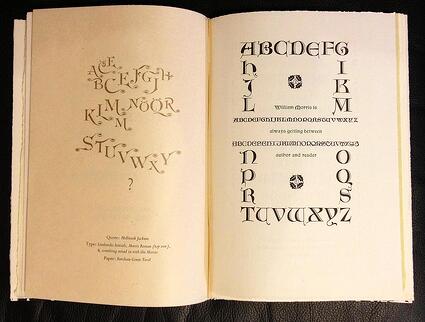 BCEFGH
KLMNOQR
M
STUVWXY
?
Quote: Holbrook Jackson
Type: Lombardic Initials, Morris Roman
& something mixed in with the Morris
Paper: Barcham Green Tovil
ABCDEFG
H I
J K
L M
William Morris is
ABCDEFGHIJKLMNOPQRSTUVWXYZ
always getting between
ABCDEFGHIJKLMNOPQRSTUVWXYZ
author and reader
N O
P Q
R S
TUVWXYZ